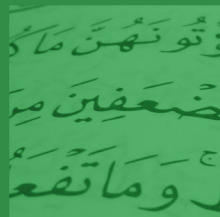 ؤْتُونَهُنَّ مَا كُ
ضْعَفِينَ مِنَ
وَمَا تَفْعَ